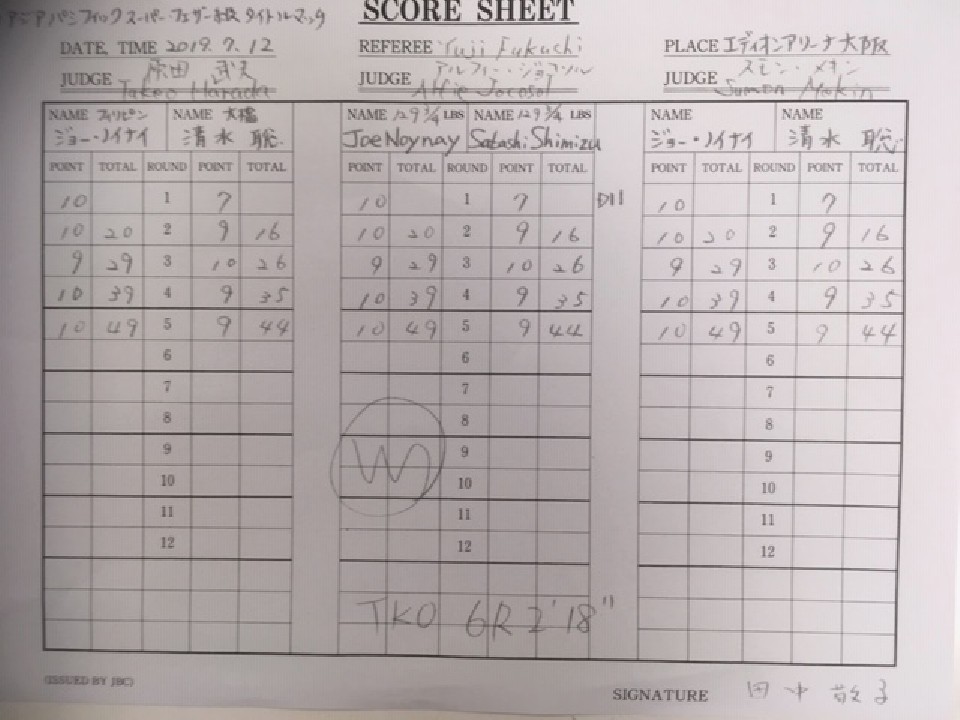 アジアパシフィックスーパーフェザー級タイトルマッチ
SCORE SHEET
DATE, TIME 2019.7.12
REFEREE Yuji Fukuchi
PLACE エディオンアリーナ大阪
原田 武夫
アルフィー・ジョコソル
スモン・メキン
JUDGE Takeo Harada
JUDGE Alfie Jocosol
JUDGE Sumon Mekin
NAME フィリピン NAME 大橋 NAME 129 3/4 LBS NAME 129 3/4 LBS NAME NAME
ジョー・ノイナイ 清水 聡 Joe Noynay Satoshi Shimizu ジョー・ノイナイ 清水 聡
POINT TOTAL ROUND POINT TOTAL POINT TOTAL ROUND POINT TOTAL POINT TOTAL ROUND POINT TOTAL
10 1 7 10 1 7 10 1 7
10 20 2 9 16 10 20 2 9 16 10 20 2 9 16
9 29 3 10 26 9 29 3 10 26 9 29 3 10 26
10 39 4 9 35 10 39 4 9 35 10 39 4 9 35
10 49 5 9 44 10 49 5 9 44 10 49 5 9 44
6 6 6
7 7 7
8 8 8
9 W 9 9
10 10 10
11 11 11
12 12 12
TKO 6R 2'18"
(ISSUED BY JBC)
SIGNATURE 田中